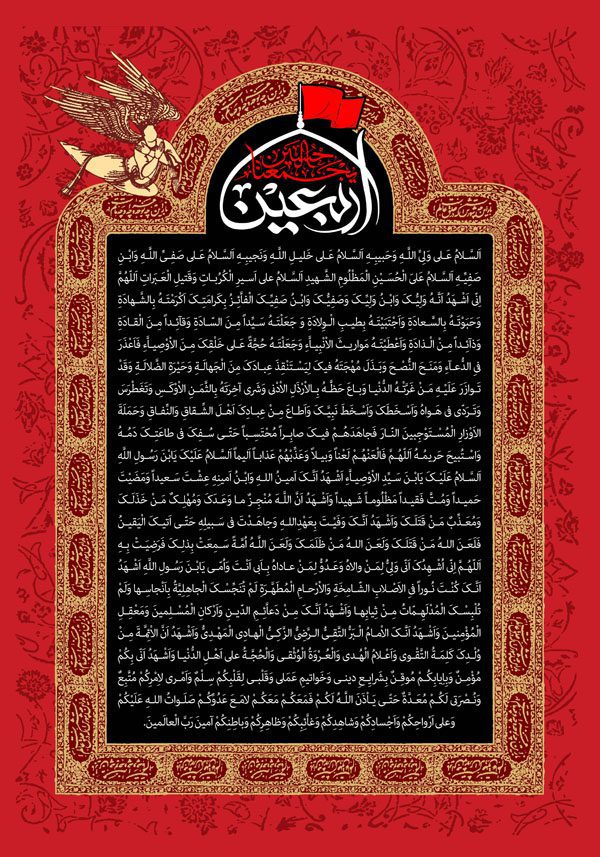 الحسین
یجمعنا
اربعین
اَلسَّلامُ عَلی وَلِیِّ اللَّهِ وَحَبیبِهِ اَلسَّلامُ عَلی خَلیلِ اللَّهِ وَنَجیبِهِ اَلسَّلامُ عَلی صَفِیِّ اللَّهِ وَابْنِ
صَفِیِّهِ اَلسَّلامُ عَلیَ الْحُسَیْنِ الْمَظْلُومِ الشَّهیدِ اَلسَّلامُ علی اَسیرِ الْکُرُباتِ وَقَتیلِ الْعَبَراتِ اَللّهُمَّ
اِنّی اَشْهَدُ اَنَّهُ وَلِیُّکَ وَابْنُ وَلِیِّکَ وَصَفِیُّکَ وَابْنُ صَفِیِّکَ الْفاَّئِزُ بِکَرامَتِکَ اَکْرَمْتَهُ بِالشَّهادَةِ
وَحَبَوْتَهُ بِالسَّعادَةِ وَاَجْتَبَیْتَهُ بِطیبِ الْوِلادَةِ وَ جَعَلْتَهُ سَیِّداً مِنَ السّادَةِ وَقآئِداً مِنَ الْقادَةِ
وَذآئِداً مِنْ الْذادَةِ وَاَعْطَیْتَهُ مَواریثَ الْأَنْبِیاَّءِ وَجَعَلْتَهُ حُجَّةً عَلی خَلْقِکَ مِنَ الْأَوْصِیاَّءِ فَاَعْذَرَ
فی الدُّعآءِ وَمَنَحَ النُّصْحَ وَبَذَلَ مُهْجَتَهُ فیکَ لِیَسْتَنْقِذَ عِبادَکَ مِنَ الْجَهالَةِ وَحَیْرَةِ الضَّلالَةِ وَقَدْ
تَوازَرَ عَلَیْهِ مَنْ غَرَّتْهُ الدُّنْیا وَباعَ حَظَّهُ بِالْأَرْذَلِ الْأَدْنی وَشَری آخِرَتَهُ بِالثَّمَنِ الْأَوْکَسِ وَتَغَطْرَسَ
وَتَرَدّی فی هَواهُ وَاَسْخَطَکَ وَاَسْخَطَ نَبِیَّکَ وَاَطاعَ مِنْ عِبادِکَ اَهْلَ الشِّقاقِ وَالنِّفاقِ وَحَمَلَةَ
الْأَوْزارِ الْمُسْتَوْجِبینَ النّارَ فَجاهَدَهُمْ فیکَ صابِراً مُحْتَسِباً حَتّی سُفِکَ فی طاعَتِکَ دَمُهُ
وَاسْتُبیحَ حَریمُهُ اَللّهُمَّ فَالْعَنْهُمْ لَعْناً وَبیلاً وَعَذِّبْهُمْ عَذاباً اَلیماً اَلسَّلامُ عَلَیْکَ یَابْنَ رَسُولِ اللَّهِ
اَلسَّلامُ عَلَیْکَ یَابْنَ سَیِّدِ الْأَوْصِیاَّءِ اَشْهَدُ اَنَّکَ اَمینُ اللهِ وَابْنُ اَمینِهِ عِشْتَ سَعیداً وَمَضَیْتَ
حَمیداً وَمُتَّ فَقیداً مَظْلُوماً شَهیداً وَاَشْهَدُ اَنَّ اللَّهَ مُنْجِزٌ ما وَعَدَکَ وَمُهْلِکٌ مَنْ خَذَلَکَ
وَمُعَذِّبٌ مَنْ قَتَلَکَ وَاَشْهَدُ اَنَّکَ وَفَیْتَ بِعَهْدِاللهِ وَجاهَدْتَ فی سَبیلِهِ حَتّی اَتیکَ الْیَقینُ
فَلَعَنَ اللهُ مَنْ قَتَلَکَ وَلَعَنَ اللهُ مَنْ ظَلَمَکَ وَلَعَنَ اللَّهُ اُمَّةً سَمِعَتْ بِذلِکَ فَرَضِیَتْ بِهِ
اَللّهُمَّ اِنّی اُشْهِدُکَ اَنّی وَلِیٌّ لِمَنْ والاهُ وَعَدُوٌّ لِمَنْ عاداهُ بِاَبی اَنْتَ وَاُمّی یَابْنَ رَسُولِ اللَّهِ اَشْهَدُ
اَنَّکَ کُنْتَ نُوراً فی الْأَصْلابِ الشّامِخَةِ وَالْأَرْحامِ الْمُطَهَّرَةِ لَمْ تُنَجِّسْکَ الْجاهِلِیَّةُ بِاَنْجاسِها وَلَمْ
تُلْبِسْکَ الْمُدْلَهِمّاتُ مِنْ ثِیابِها وَاَشْهَدُ اَنَّکَ مِنْ دَعاَّئِمِ الدّینِ وَاَرْکانِ الْمُسْلِمینَ وَمَعْقِلِ
الْمُؤْمِنینَ وَاَشْهَدُ اَنَّکَ الْأِمامُ الْبَرُّ التَّقِیُّ الرَّضِیُّ الزَّکِیُّ الْهادِی الْمَهْدِیُّ وَاَشْهَدُ اَنَّ الْأَئِمَّةَ مِنْ
وُلْدِکَ کَلِمَةُ التَّقْوی وَاَعْلامُ الْهُدی وَالْعُرْوَةُ الْوُثْقی وَالْحُجَّةُ علی اَهْلِ الدُّنْیا وَاَشْهَدُ اَنّی بِکُمْ
مُؤْمِنٌ وَبِاِیابِکُمْ مُوقِنٌ بِشَرایِعِ دینی وَخَواتیمِ عَمَلی وَقَلْبی لِقَلْبِکُمْ سِلْمٌ وَاَمْری لِاَمْرِکُمْ مُتَّبِعٌ
وَنُصْرَتی لَکُمْ مُعَدَّةٌ حَتّی یَاْذَنَ اللَّهُ لَکُمْ فَمَعَکُمْ مَعَکُمْ لامَعَ عَدُوِّکُمْ صَلَواتُ اللهِ عَلَیْکُمْ
وَعلی اَرْواحِکُمْ وَاَجْسادِکُمْ وَشاهِدِکُمْ وَغاَّئِبِکُمْ وَظاهِرِکُمْ وَباطِنِکُمْ آمینَ رَبَّ الْعالَمینَ.